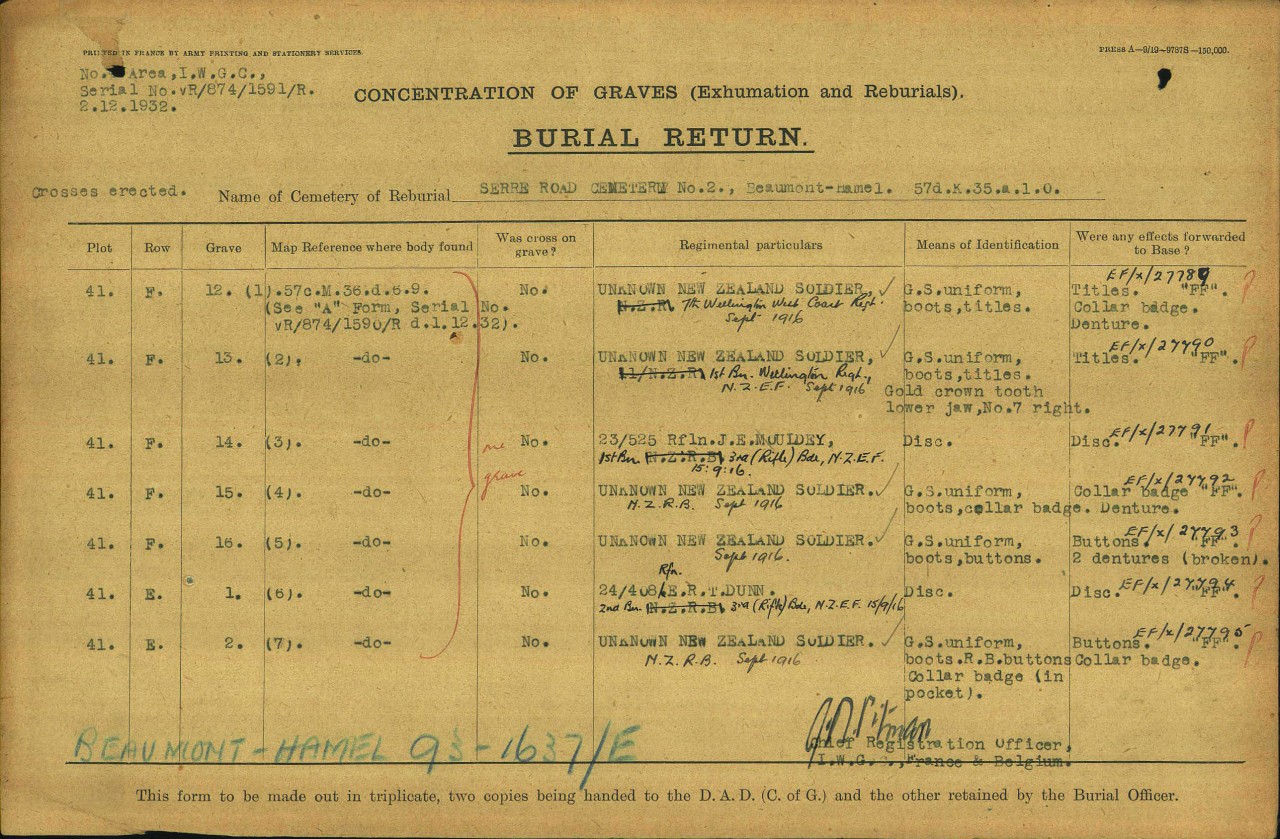 PRINTED IN FRANCE BY ARMY PRINTING AND STATIONERY SERVICES.
PRESS A—9/19—9787S—150,000.
No. Area,I.W.G.C.,
Serial No.vR/874/1591/R.
2.12.1932.
CONCENTRATION OF GRAVES (Exhumation and Reburials).
BURIAL RETURN.
Crosses erected.
Name of Cemetery of Reburial SERRE ROAD CEMETERY No.2., Beaumont-Hamel. 57d.K.35.a.1.0.
Plot Row Grave Map Reference where body found Was cross on grave? Regimental particulars Means of Identification Were any effects forwarded to Base?
EF/x/27789
41. F. 12. (1).57c.M.36.d.6.9. No. UNKNOWN NEW ZEALAND SOLDIER, G.S.uniform, Titles. "FF".
(See "A" Form, Serial No. N.Z.R. 7th Wellington West Coast Regt. boots,titles. Collar badge.
vR/874/1590/R d.1.12.32). Sept 1916 Denture.
EF/x/27790
41. F. 13. (2). -do- No. UNKNOWN NEW ZEALAND SOLDIER, G.S.uniform, Titles. "FF".
11/N.Z.R. 1st Bn. Wellington Regt., boots,titles.
N.Z.E.F. Sept 1916 Gold crown tooth
lower jaw,No.7 right.
EF/x/27791
41. F. 14. (3). -do- No. 23/525 Rfln.J.E.MOULDEY, Disc. Disc. "FF".
1st Bn. N.Z.R.B. 3rd (Rifle) Bde, N.Z.E.F.
15.9.16.
one
grave
EF/x/27792
41. F. 15. (4). -do- No. UNKNOWN NEW ZEALAND SOLDIER. G.S.uniform, Collar badge "FF".
N.Z.R.B. Sept 1916 boots,collar badge. Denture.
EF/x/27793
41. F. 16. (5). -do- No. UNKNOWN NEW ZEALAND SOLDIER. G.S.uniform, Buttons. "FF".
Sept 1916. boots,buttons. 2 dentures (broken).
Rfn.
EF/x/27794
41. E. 1. (6). -do- No. 24/408 E.R.T.DUNN. Disc. Disc. "FF".
2nd Bn. N.Z.R.B. 3rd (Rifle) Bde, N.Z.E.F. 15/9/16
EF/x/27795
41. E. 2. (7). -do- No. UNKNOWN NEW ZEALAND SOLDIER. G.S.uniform, Buttons. "FF".
N.Z.R.B. Sept 1916 boots.R.B.buttons Collar badge.
Collar badge (in
pocket).
BEAUMONT-HAMEL 93-1637/E
Chief Registration Officer,
I.W.G.C.,France & Belgium.
This form to be made out in triplicate, two copies being handed to the D. A. D. (C. of G.) and the other retained by the Burial Officer.